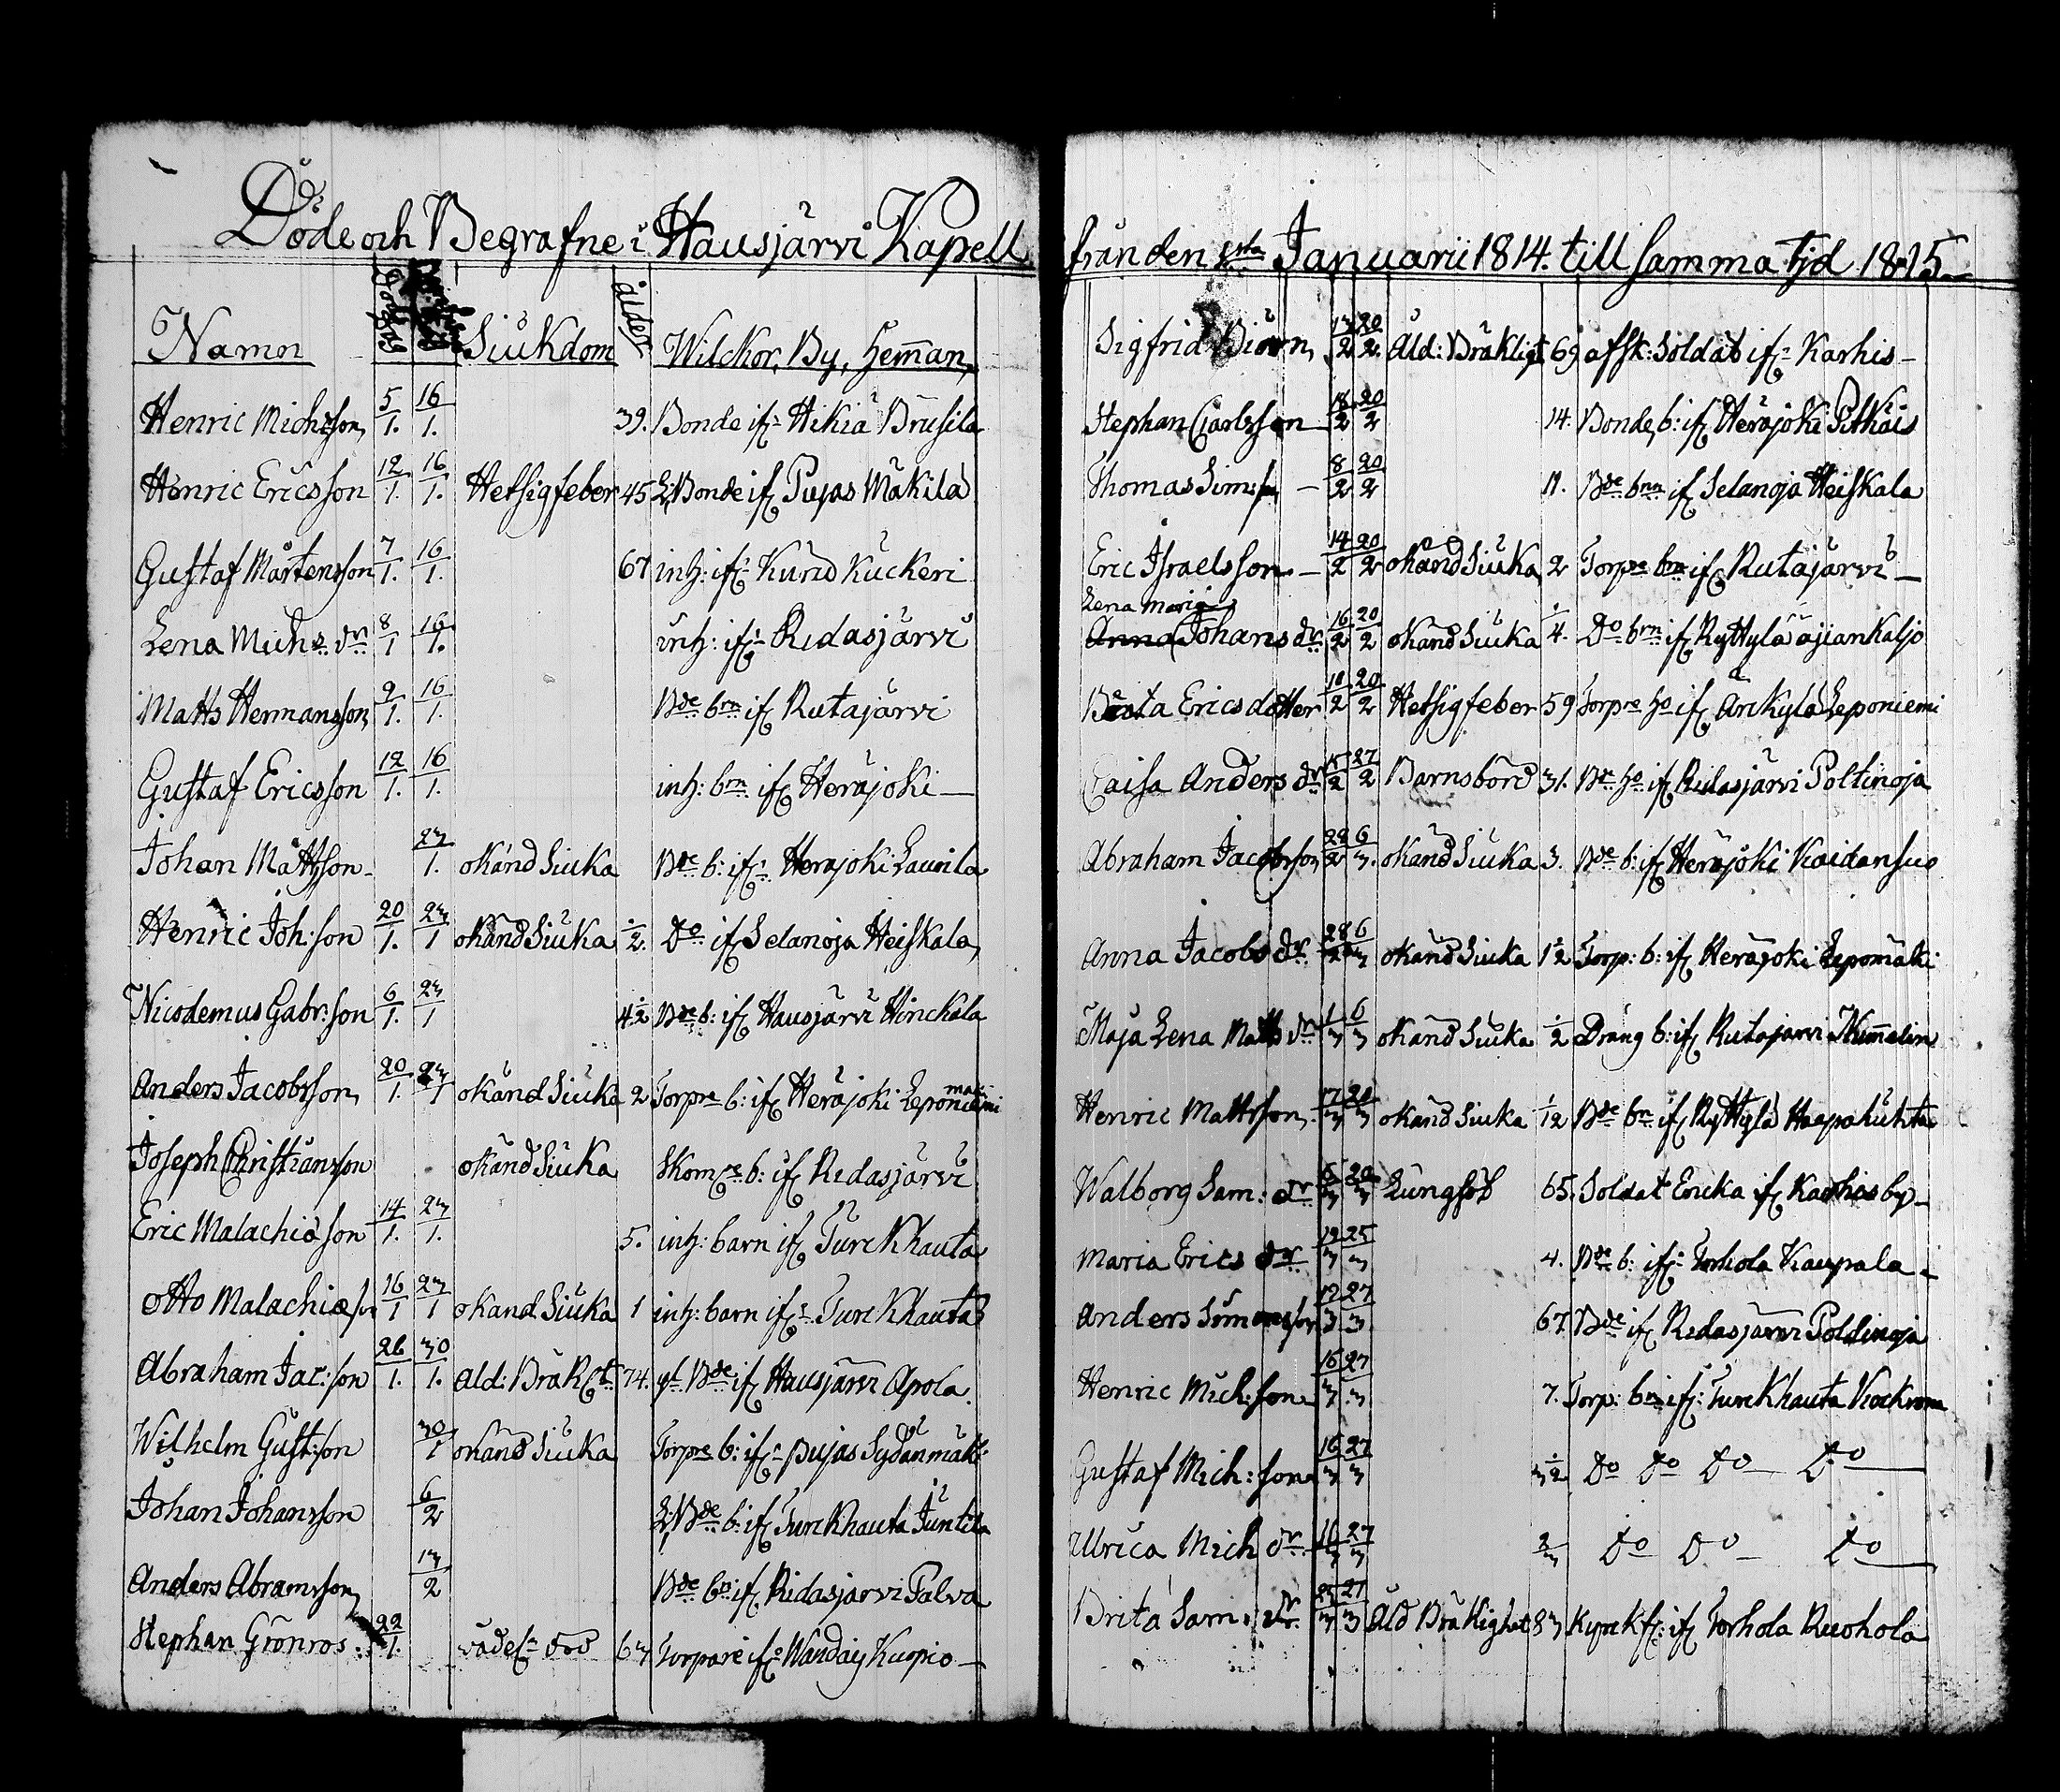 Döde och Begrafne i Hausjärvi Kapell
Namn Siukdom ålder Wilckor, By, Heman,
Henric Michsson 5/1. 16/1. 39. Bonde if: Hikiä Brusila
Henric Ericsson 12/1. 16/1. Hetsigfeber 45 Bonde if Pujas Mäkilä
Gustaf Mårtensson 7/1. 16/1. 67 inh: if: Kurd Kuckeri
Lena Michs dr 8/1 16/1. inh: if: Ridasjärvi
Matts Hermansson 9/1. 16/1. Bde brn if Rutajärvi
Gustaf Ericsson 12/1. 16/1. inh: brn if Heräjoki —
Johan Mattsson 23/1. okänd Siuka Bde b: if: Heräjoki Launila
Henric Joh:son 20/1. 23/1 okänd Siuka 1/2. Do if Selänoja Heiskala
Nicodemus Gabr:son 6/1. 23/1 4 1/2 Bde b: if Hausjärvi Hinckala
Anders Jacobsson 20/1. 23/1 okänd Siuka 2 Torpre b: if Heräjoki Leponiemi mäki
Joseph Christiansson okänd Siuka Skom b: if Ridasjärvi
Eric Malachiæson 14/1. 23/1. 5. inh: barn if Turckhauta
Otto Malachiæson 16/1 23/1 okänd Siuka 1 inh: barn if: Turckhauta
Abraham Jac:son 26/1. 30/1. Ald: Bräkl: 74. gl. Bde if Hausjärvi Apola
Wilhelm Gust:son 30/1 okänd Siuka Torpre b: if: Pujas Sydänmäki
Johan Johansson 6/2 Bde b: if Turckhauta Juntila
Anders Abramsson 13/2 Bde bn: if Ridasjärvi Palva
Stephan Grönros 22/1. våde död 63 Torpare if: Kuopio —
från den 1sta Januarii 1814. till samma tjd 1815.
Sigfrid Biörn 13/2 20/2. Åld: Bräkligt 69 afsk: Soldat if: Karhis —
Stephan Carlsson 18/2 20/2 14. Bonde b: if Heräjoki Pitkäis
Thomas Sim:s — 8/2 20/2 11. Bde brn if Selänoja Heiskala
Eric Israelsson — 14/2 20/2 okänd Siuka 2 Torpre brn if Rutajärvi —
Lena Maria
Anna Johans dr 16/2 20/2 okänd Siuka 1/4. Do brn if Ryttylä äjiankaljo
Beata Ericsdotter 10/2 20/2 Hetsigfeber 59 Torpre Ho if Arckylä Leponiemi
Caisa Anders dr 15/2 27/2 Barnsbörd 31. Bde Ho if Ridasjärvi Poltinoja
Abraham Jacobsson 22/2 6/3. okänd Siuka 3. Bde b: if Heräjoki Kaidansuo
Anna Jacobs dr 28/2 6/3 okänd Siuka 1 1/2 Torp: b: if Heräjoki Lepomäki
Maja Lena Matts dr 1/3 6/3 okänd Siuka 1/2 Dräng b: if Rutajärvi
Henric Mattsson 17/3 20/3 okänd Siuka 1/12 Bde bn if Ryttylä Haapahuhta
Walborg Sam: dr 15/3 20/3 Lungsot 65. Soldat Encka if Karhis by —
Maria Erics dr 19/3 25/3 4. Bde b: if: Torhola Kaupala —
Anders Simonsson 17/3 27/3 67 Bde if Ridasjärvi Poldinoja
Henric Mich:son 16/3 27/3 7. Torp: bn if: Turckhauta
Gustaf Mich:son 16/3 27/3 3 1/2 Do Do Do Do
Ulrica Mich dr 16/3 27/3 2/3 Do Do Do
Brita Sam: dr. 25/3 27/3 Åld Bräklighet 83 if Torhola Ruohola